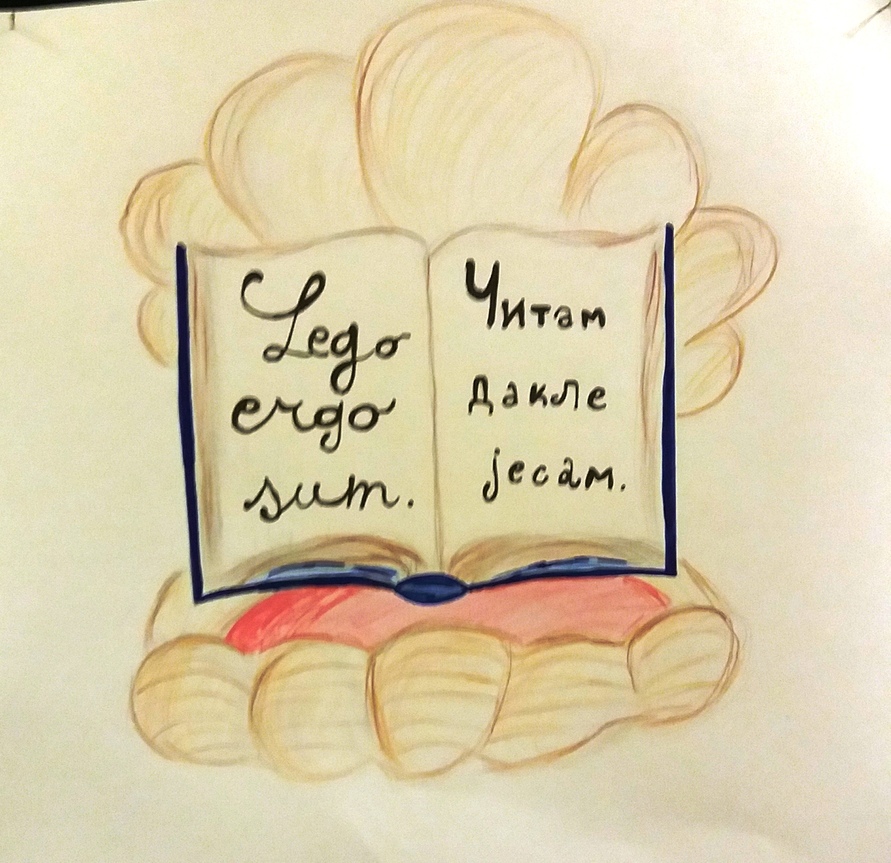 Lego
ergo
sum.
Читам
дакле
јесам.